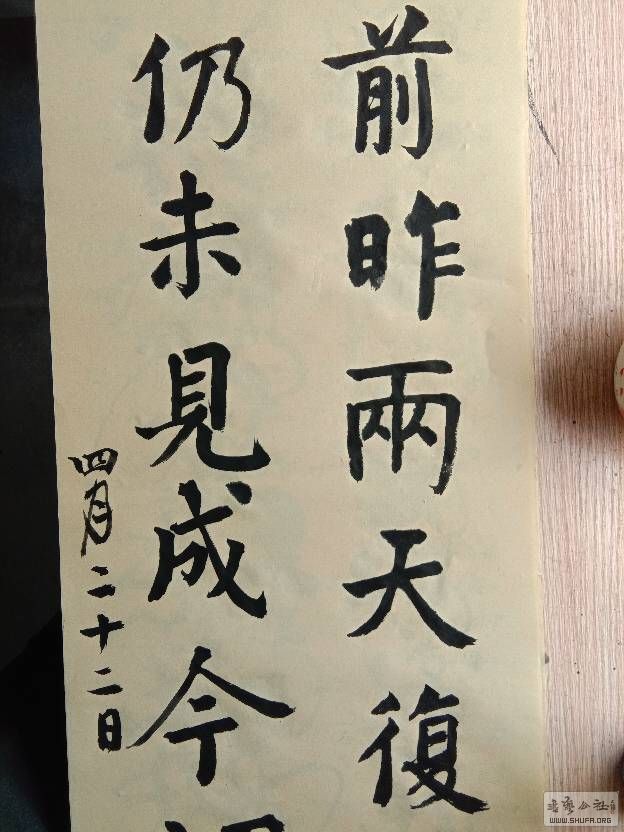 前昨兩天復
仍未見成今
四月二十二日
WWW.SHUFA.ORG